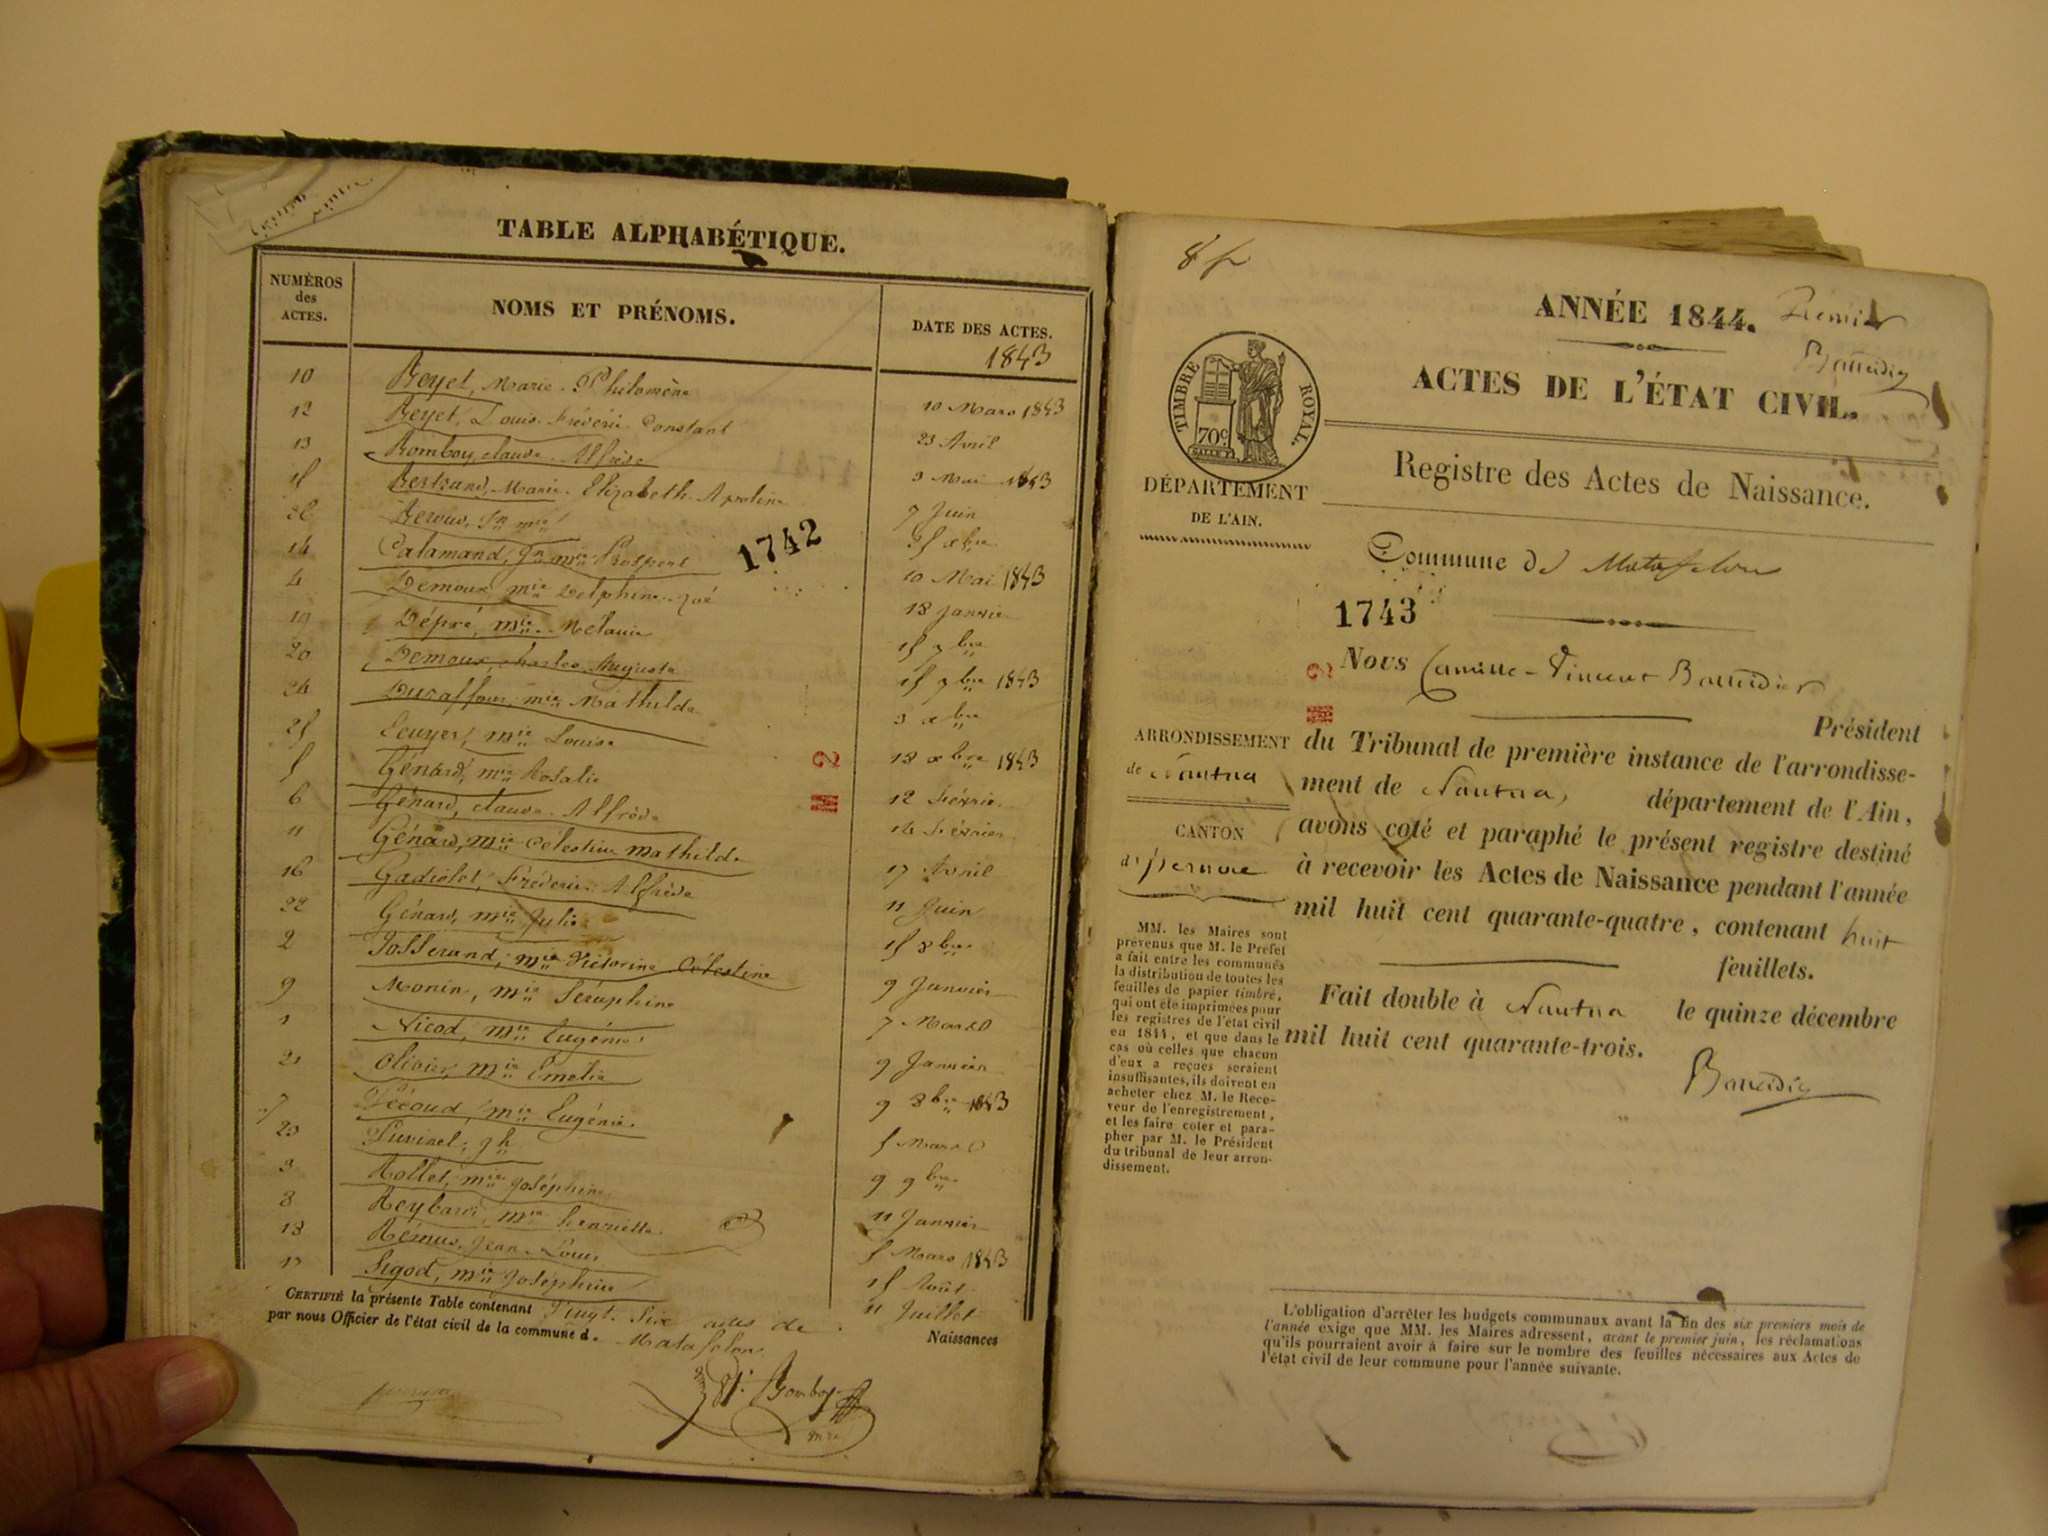 TABLE ALPHABÉTIQUE.
NUMÉROS des ACTES.
NOMS ET PRÉNOMS.
DATE DES ACTES.
1843
10 Beyet, Marie Philomène 10 Mars 1843
12 Beyet, Louis Frédéric Constant 23 Avril
13 Bomboy, claude Alfrède 3 Mai 1843
15 Bertrand, Marie Elizabeth Apoline 7 Juin
26
14 Calamand, Jn mie Prospert 10 Mai 1843
4 Demoux, mie Delphine Zoé 18 Janvier
19 Dépré, mie Mélanie 15 7bre
20 Demoux, charles Auguste 15 7bre 1843
24 Duraffour, mie Mathilde 3 xbre
25 Ecuyer, mie Louise 18 xbre 1843
5 Génard, mie Rosalie 12 Février
6 Génard, claude Alfrède 16 Février
11 Génard, mie Célestine Mathilde 17 Avril
16 Gadiolet, Fréderic Alfrède 11 Juin
22 Génard, mie Julie 15 8bre
2 Josserand, mie Victorine Célestine 9 Janvier
9 Monin, mie Séraphine 7 Mars
1 Nicod, mie Eugénie 9 Janvier
21 Olivier, mie Emelie 9 8bre 1843
7 Pécoud, mie Eugénie 5 Mars
23 Puvinel, jh 9 9bre
3 Rollet, mie Joséphine 11 Janvier
8 Reybard, mie henriette 5 Mars 1843
18 Rémus, Jean Louis 15 Août
17 Sigod, mie Joséphine 11 Juillet
CERTIFIÉ la présente Table contenant Vingt Six actes de Naissances
par nous Officier de l'état civil de la commune de Matafelon
1742
2
Bomboy
mre
8 f
ANNÉE 1844.
Premier
Baudier
ACTES DE L'ÉTAT CIVIL.
TIMBRE ROYAL.
70c
Registre des Actes de Naissance.
DÉPARTEMENT
DE L'AIN.
Commune de Matafelon
1743
2
Nous Camille-Vincent Baudier
Président
du Tribunal de première instance de l'arrondisse-
ment de Nantua, département de l'Ain,
avons coté et paraphé le présent registre destiné
à recevoir les Actes de Naissance pendant l'année
mil huit cent quarante-quatre, contenant huit
feuillets.
Fait double à Nantua le quinze décembre
mil huit cent quarante-trois.
ARRONDISSEMENT
de Nantua
CANTON
d'izernore
MM. les Maires sont
prévenus que M. le Préfet
a fait entre les communes
la distribution de toutes les
feuilles de papier timbré,
qui ont été imprimées pour
les registres de l'état civil
en 1844, et que dans le
cas où celles que chacun
d'eux a reçues seraient
insuffisantes, ils doivent en
acheter chez M. le Rece-
veur de l'enregistrement,
et les faire coter et para-
pher par M. le Président
du tribunal de leur arron-
dissement.
L'obligation d'arrêter les budgets communaux avant la fin des six premiers mois de
l'année exige que MM. les Maires adressent, avant le premier juin, les réclamations
qu'ils pourraient avoir à faire sur le nombre des feuilles nécessaires aux Actes de
l'état civil de leur commune pour l'année suivante.